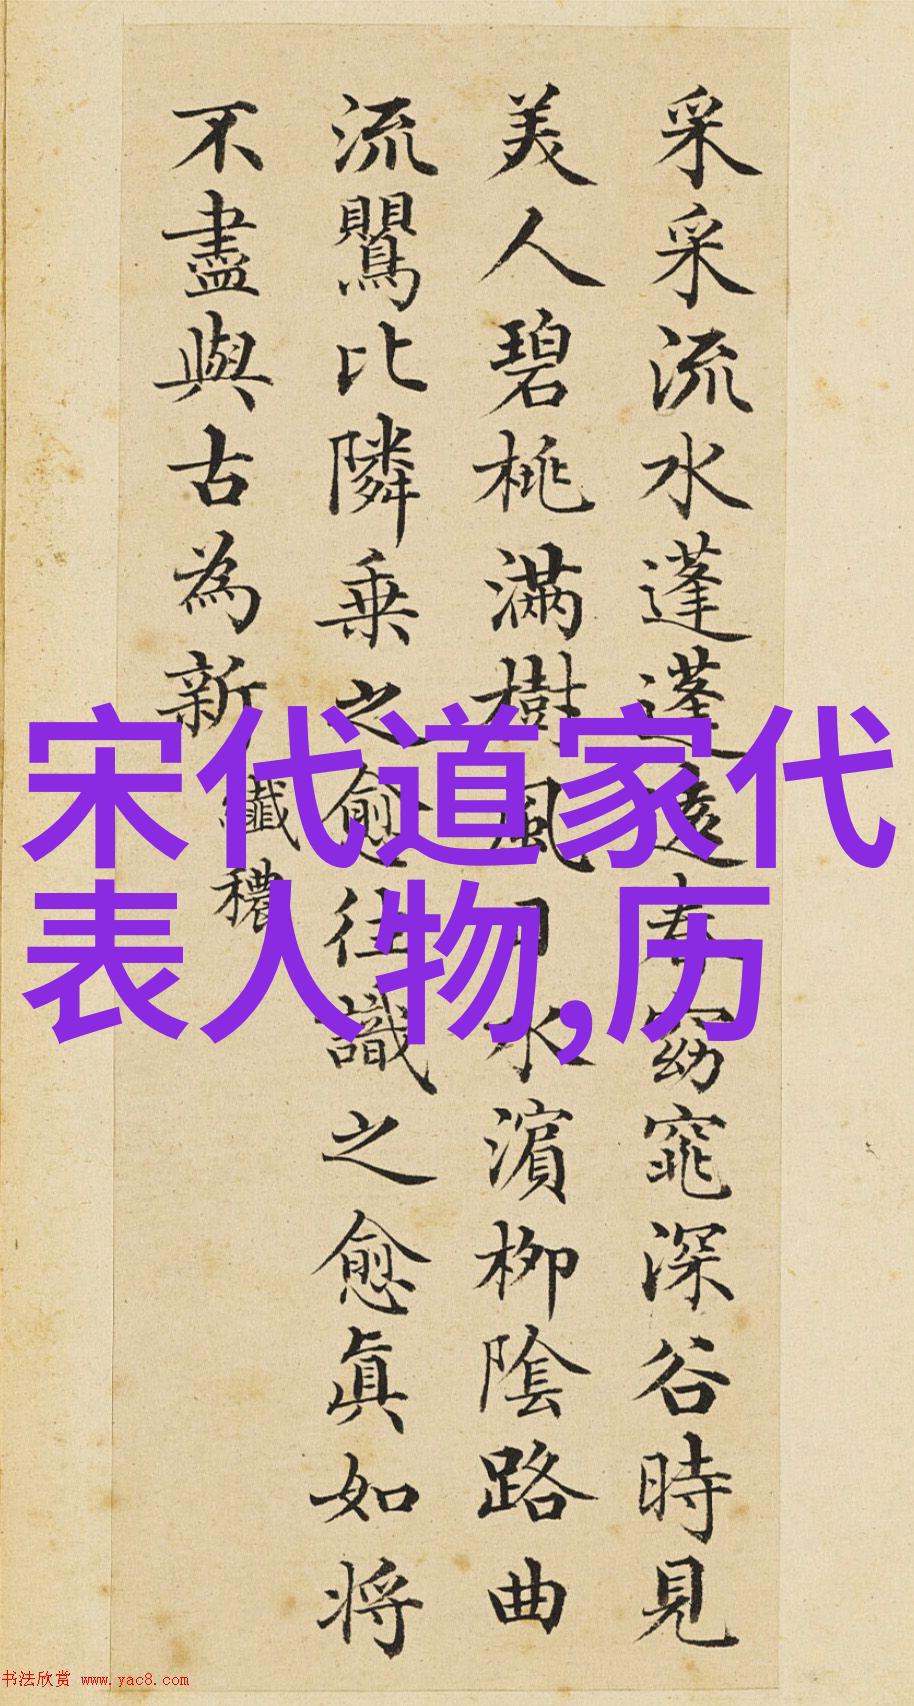 采采流水蓬蓬遠春窈窕深谷時見
美人碧桃滿樹風日水濱柳隂路曲
流鸎比隣乗之愈往識之愈眞如将
不盡與古為新
纖穠
宋代道家代
表人物,历
书法欣赏 www.yac8.com